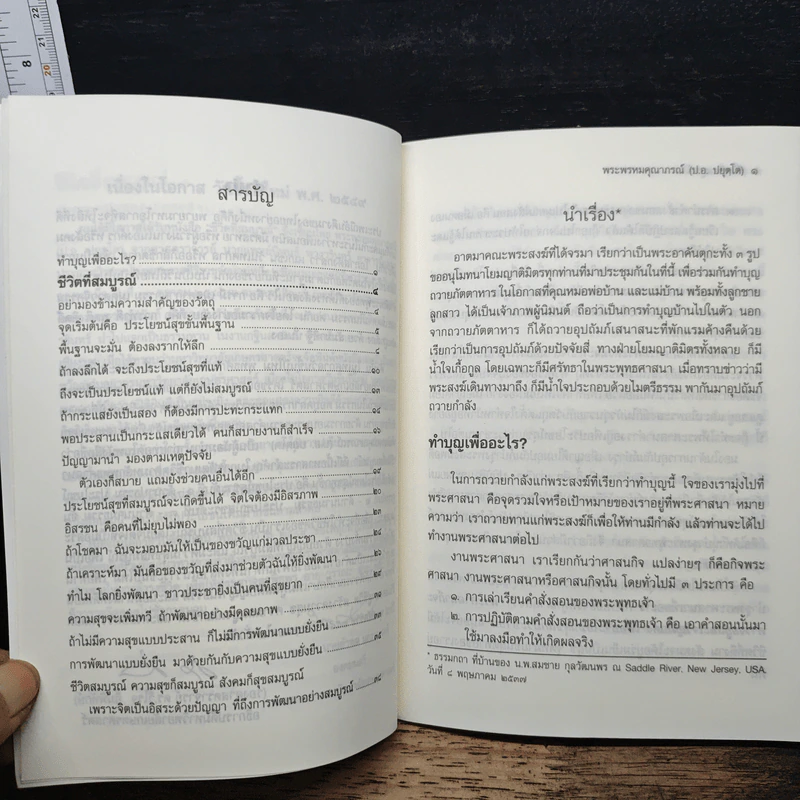 สารบัญ
ทำบุญเพื่ออะไร? ๑
ชีวิตที่สมบูรณ์ ๔
อย่ามองข้ามความสำคัญของวัตถุ ๔
จุดเริ่มต้นคือ ประโยชน์สุขขั้นพื้นฐาน ๕
พื้นฐานจะมั่น ต้องลงรากให้ลึก ๘
ถ้าลงลึกได้ จะถึงประโยชน์สุขที่แท้ ๑๐
ถึงจะเป็นประโยชน์แท้ แต่ก็ยังไม่สมบูรณ์ ๑๓
ถ้ากระแสยังเป็นสอง ก็ต้องมีการปะทะกระแทก ๑๔
พอประสานเป็นกระแสเดียวได้ คนก็สบายงานก็สำเร็จ ๑๖
ปัญญามานำ มองตามเหตุปัจจัย
ตัวเองก็สบาย แถมยังช่วยคนอื่นได้อีก ๑๙
ประโยชน์สุขที่สมบูรณ์จะเกิดขึ้นได้ จิตใจต้องมีอิสรภาพ ๒๐
อิสรชน คือคนที่ไม่ยุบไม่พอง ๒๓
ถ้าโชคมา ฉันจะมอบมันให้เป็นของขวัญแก่มวลประชา ๒๔
ถ้าเคราะห์มา มันคือของขวัญที่ส่งมาช่วยตัวฉันให้ยิ่งพัฒนา ๒๖
ทำไม โลกยิ่งพัฒนา ชาวประชายิ่งเป็นคนที่สุขยาก ๒๙
ความสุขจะเพิ่มทวี ถ้าพัฒนาอย่างมีดุลยภาพ ๓๑
ถ้าไม่มีความสุขแบบประสาน ก็ไม่มีการพัฒนาแบบยั่งยืน ๓๔
การพัฒนาแบบยั่งยืน มาด้วยกันกับความสุขแบบยั่งยืน ๓๕
ชีวิตสมบูรณ์ ความสุขก็สมบูรณ์ สังคมก็สุขสมบูรณ์
เพราะจิตเป็นอิสระด้วยปัญญา ที่ถึงการพัฒนาอย่างสมบูรณ์ ๓๘
พระพรหมคุณาภรณ์ (ป.อ. ปยุตฺโต) ๑
นำเรื่อง*
อาตมาคณะพระสงฆ์ที่ได้จรมา เรียกว่าเป็นพระอาคันตุกะทั้ง ๓ รูป
ขออนุโมทนาโยมญาติมิตรทุกท่านที่มาประชุมกันในที่นี้ เพื่อร่วมกันทำบุญ
ถวายภัตตาหาร ในโอกาสที่คุณหมอพ่อบ้าน และแม่บ้าน พร้อมทั้งลูกชาย
ลูกสาว ได้เป็นเจ้าภาพผู้นิมนต์ ถือว่าเป็นการทำบุญบ้านไปในตัว นอก
จากถวายภัตตาหาร ก็ได้ถวายอุปถัมภ์เสนาสนะที่พักแรมค้างคืนด้วย
เรียกว่าเป็นการอุปถัมภ์ด้วยปัจจัยสี่ ทางฝ่ายโยมญาติมิตรทั้งหลาย ก็มี
น้ำใจเกื้อกูล โดยเฉพาะก็มีศรัทธาในพระพุทธศาสนา เมื่อทราบข่าวว่ามี
พระสงฆ์เดินทางมาถึง ก็มีน้ำใจประกอบด้วยไมตรีธรรม พากันมาอุปถัมภ์
ถวายกำลัง
ทำบุญเพื่ออะไร?
ในการถวายกำลังแก่พระสงฆ์ที่เรียกว่าทำบุญนี้ ใจของเรามุ่งไปที่
พระศาสนา คือจุดรวมใจหรือเป้าหมายของเราอยู่ที่พระศาสนา หมาย
ความว่า เราถวายทานแก่พระสงฆ์ก็เพื่อให้ท่านมีกำลัง แล้วท่านจะได้ไป
ทำงานพระศาสนาต่อไป
งานพระศาสนา เราเรียกกันว่าศาสนกิจ แปลง่ายๆ ก็คือกิจพระ
ศาสนา งานพระศาสนาหรือศาสนกิจนั้น โดยทั่วไปมี ๓ ประการ คือ
๑. การเล่าเรียนคำสั่งสอนของพระพุทธเจ้า
๒. การปฏิบัติตามคำสั่งสอนของพระพุทธเจ้า คือ เอาคำสอนนั้นมา
ใช้มาลงมือทำให้เกิดผลจริง
* ธรรมกถา ที่บ้านของ น.พ.สมชาย กุลวัฒนพร ณ Saddle River, New Jersey, USA.
วันที่ ๘ พฤษภาคม ๒๕๓๗
8
19
20
21
22